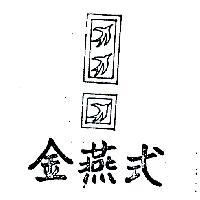 金燕式